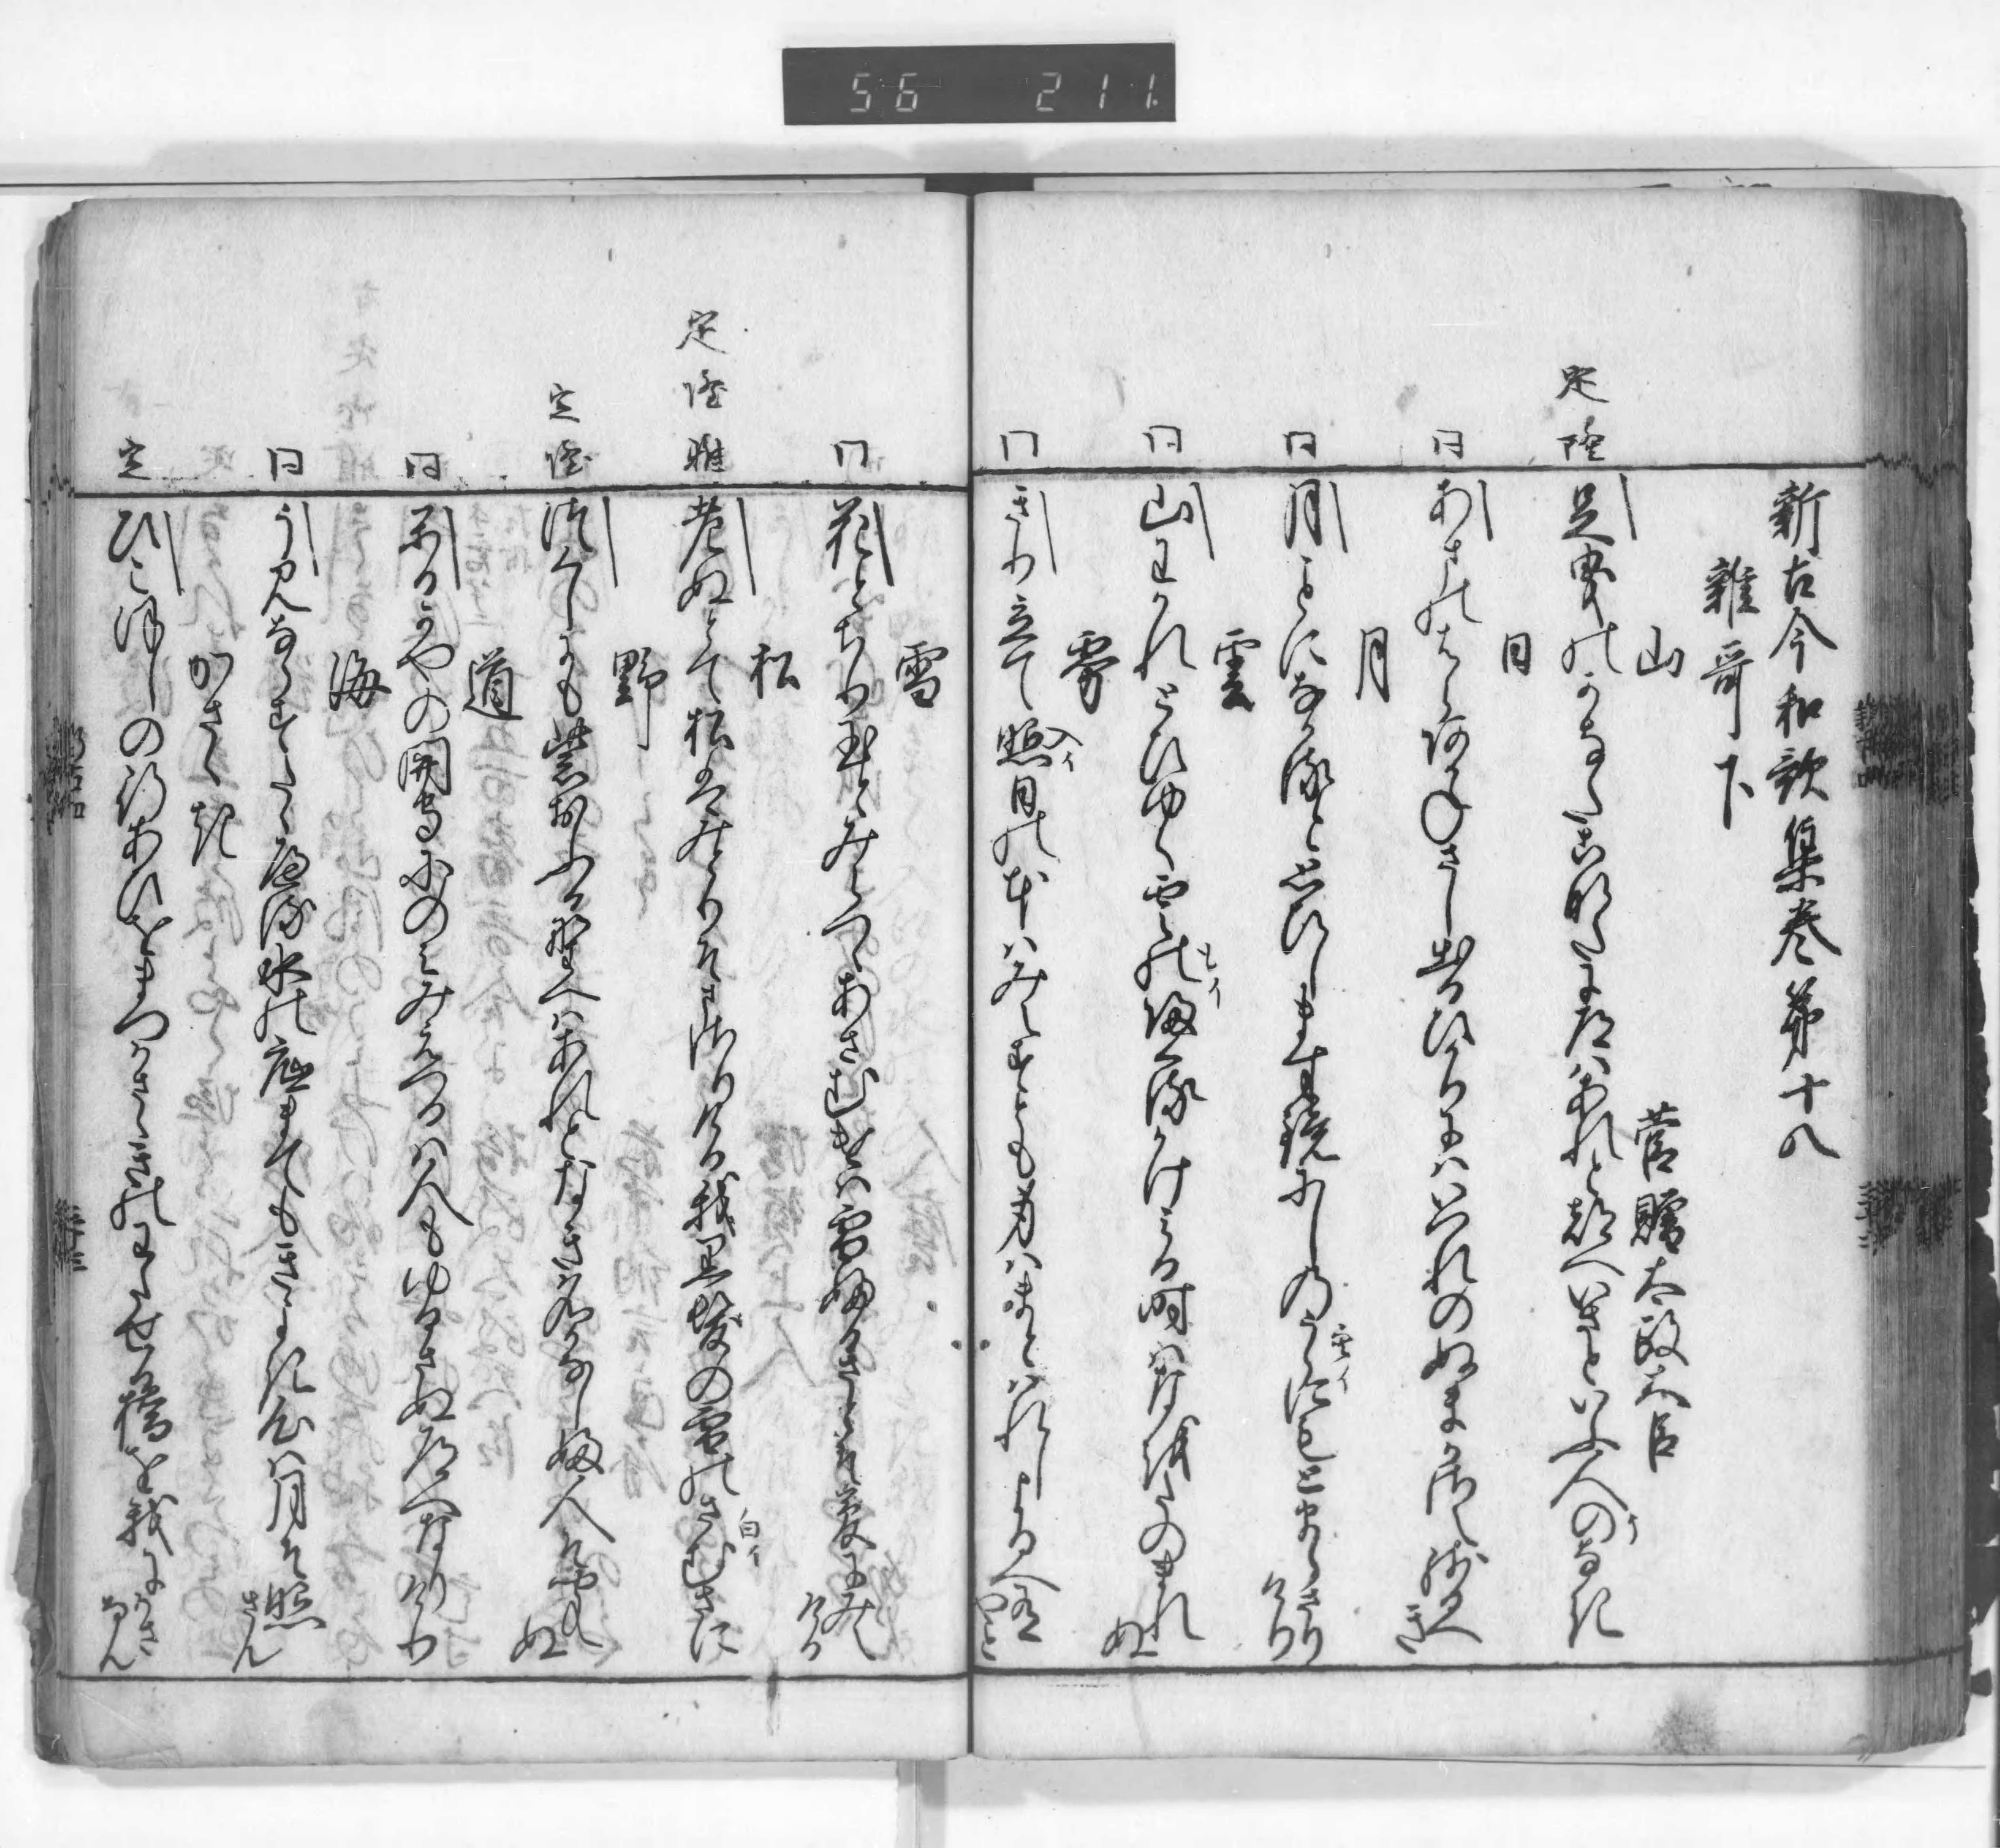 56 211
新古今和歌集巻第十八
雑哥下
山
菅贈太政大臣
定 隆
足曳のかなたこなたに道はあれと都へいさといふ人のなき
う
日
同
あまのはらあかねさし出るひかりにはいつれのぬまかさえ残るへき
月
同
月ことになかると思ひします鏡にしのうらにもとまらさりけり
雲
同
山わかれとひゆく雲の帰りくるかけみる時は猶たのまれぬ
もイ
霧
同
きり立て照日の本はみえすとも身はまとはれしよるへありやと
雪
同
花とちり玉とみえつゝあさむけは雪ふるさとそ夢にみえける
松
定 隆 雅
老ぬとて松はみとりそまさりける我黒髪の雪のさむさに
白イ
野
定 隆
つくしにも紫おふる野へはあれとなき名かなしふ人そ聞えぬ
道
同
かるかやの関守にのみみえつるは人もゆるさぬ道へなりけり
海
同
うみならすたゝへる水の底まてもきよき心は月そ照さん
かさゝき
定
ひこほしの行あひをまつかさゝきのわたせる橋を我にかさなん